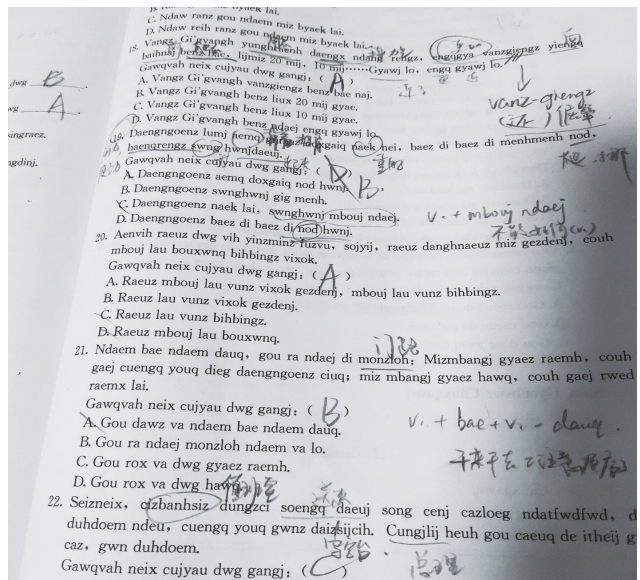 C. Ndaw ranz gou ndaem miz byaek lai.
D. Ndaw reih ranz gou ndaem miz byaek lai.
18. Vangz Gi'gvangh yunghhenh daengx ndang rengz, engqgya vanzgiengz yiengq
baihnaj benz bae, lijmiz 20 mij, 10 mij……Gyawj lo, engq gyawj lo.
Gawqvah neix cujyau dwg gangj: ( A )
A. Vangz Gi'gvangh vanzgiengz benz bae naj.
B. Vangz Gi'gvangh benz liux 20 mij gyae.
C. Vangz Gi'gvangh benz liux 10 mij gyae.
D. Vangz Gi'gvangh benz ndaej engq gyawj lo.
19. Daengngoenz lumj aemq doxgaiq naek nei, baez di baez di menhmenh nod,
haenqrengz swng hwnjdaeuj.
Gawqvah neix cujyau dwg gangj: ( B.
A. Daengngoenz aemq doxgaiq nod hwnj.
B. Daengngoenz swnghwnj gig menh.
C. Daengngoenz naek lai, swnghwnj mbouj ndaej.
D. Daengngoenz baez di baez di nod hwnj.
v. + mbouj ndaej
20. Aenvih raeuz dwg vih yinzminz fuzvu, sojyij, raeuz danghnaeuz miz gezdenj, couh
mbouj lau bouxwnq bihbingz vixok.
Gawqvah neix cujyau dwg gangj: ( A )
A. Raeuz mbouj lau vunz vixok gezdenj, mbouj lau vunz bihbingz.
B. Raeuz lau vunz vixok gezdenj.
C. Raeuz lau vunz bihbingz.
D. Raeuz mbouj lau bouxwnq.
21. Ndaem bae ndaem dauq, gou ra ndaej di monzloh: Mizmbangj gyaez raemh, couh
gaej cuengq youq dieg daengngoenz ciuq; miz mbangj gyaez hawq, couh gaej rwed
raemx lai.
Gawqvah neix cujyau dwg gangj: ( B )
A. Gou dawz va ndaem bae ndaem dauq.
B. Gou ra ndaej monzloh ndaem va lo.
C. Gou rox va dwg gyaez raemh.
D. Gou rox va dwg hawq.
v. + bae + v. - dauq.
22. Seizneix, cizbanhsiz dungzci soengq daeuj song cenj cazloeg ndatfwdfwd, d
duhdoem ndeu, cuengq youq gwnz daizsijcih. Cungjlij heuh gou caeuq de itheij g
caz, gwn duhdoem.
Gawqvah neix cujyau dwg gangj: ( C )
dwg B
A
ingraez.
gdinj.